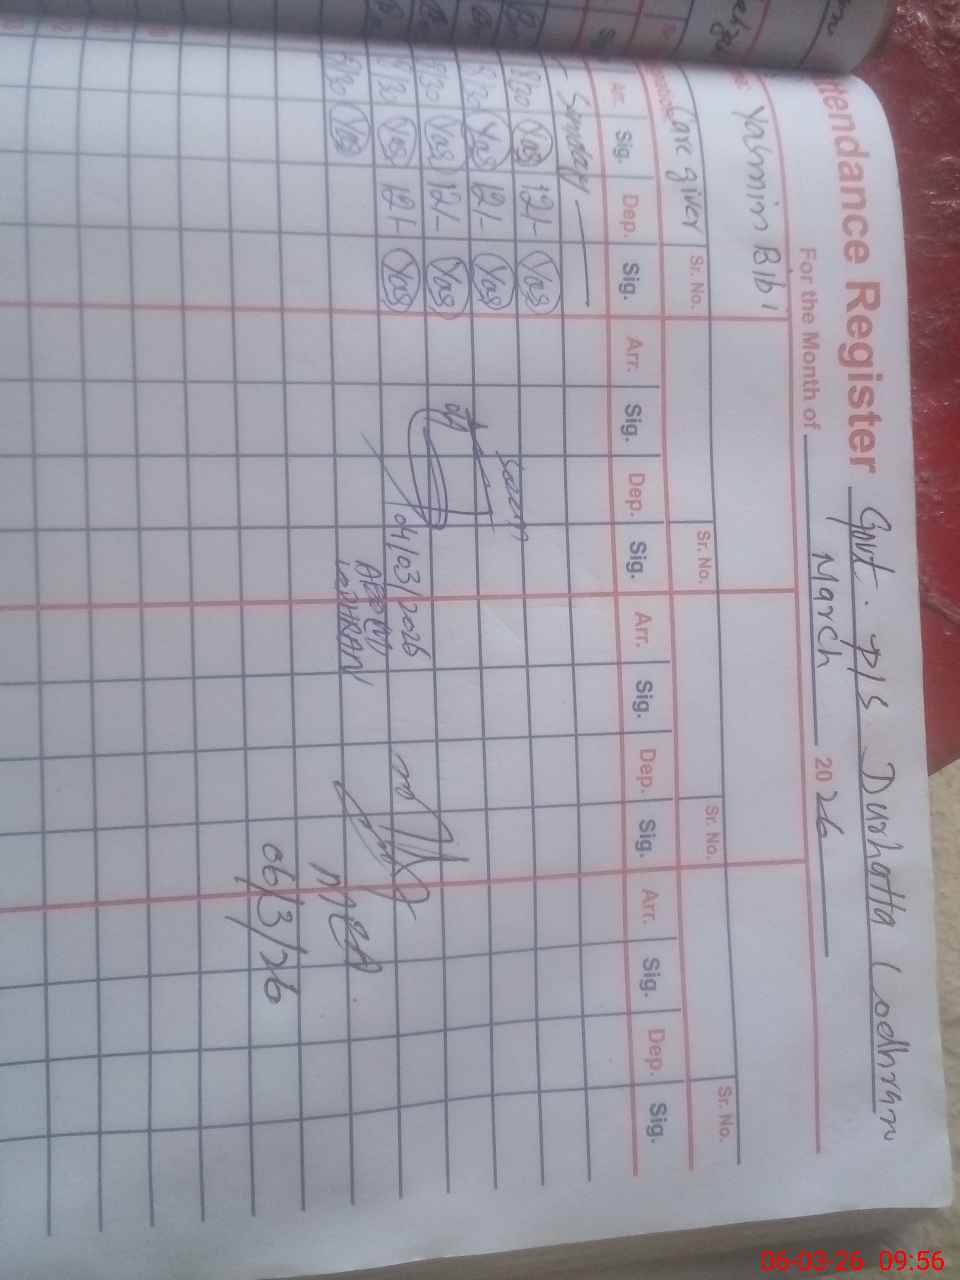 Attendance Register Govt. P/S Durhatta Lodhran
For the Month of March 2026
Yasmin Bibi
Care giver Sr. No. Sr. No. Sr. No. Sr. No.
Arr. Sig. Dep. Sig. Arr. Sig. Dep. Sig. Arr. Sig. Dep. Sig. Arr. Sig. Dep. Sig.
Sunday
8/30 Yas 12/- Yas
8/30 Yas 12/- Yas
8/30 Yas 12/- Yas
8/30 Yas 12/- Yas
8/30 Yas
04/03/2026
AEO (M)
LODHRAN
06/3/26
06-03-26 09:56